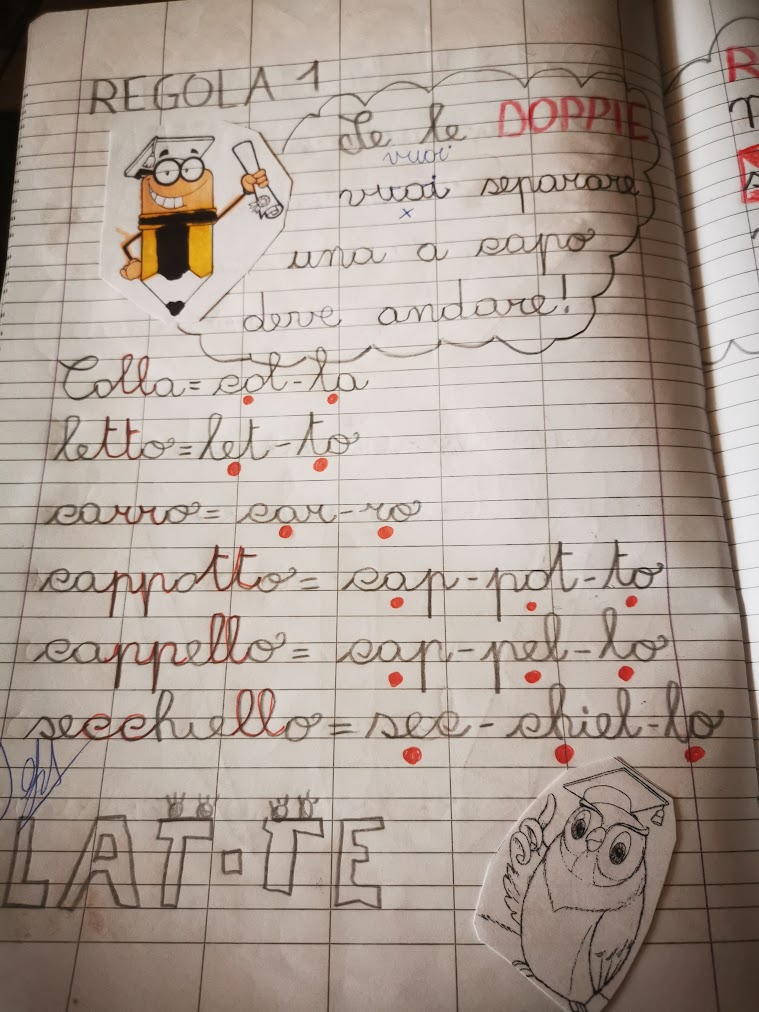 REGOLA 1
Se le DOPPIE
vuoi
vuoi separare
x
una a capo
deve andare!
Colla = col-la
letto = let-to
carro = car-ro
cappotto = cap-pot-to
cappello = cap-pel-lo
secchiello = sec-chiel-lo
LAT-TE